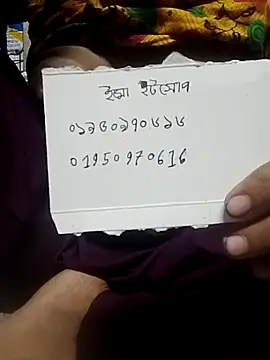 ইমো ইটসোপ
০১৯৫০৯৭০৬১৬
01950970616